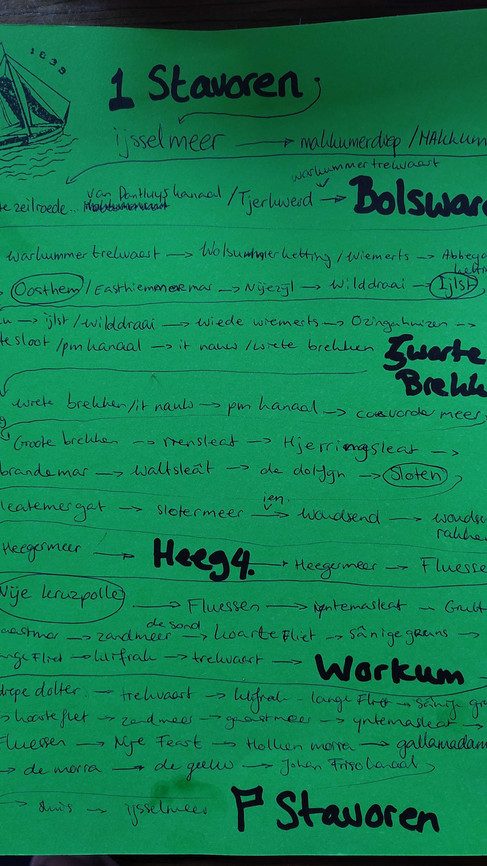 1699
1 Stavoren
ijsselmeer → makkumerdiep / MAkkum
warkummertrekvaart
te zeilroede... van Panhuyskanaal / Tjerkwerd → Bolsward
warkummer trekvaart → Wolsummerketting / wiemerts → Abbega ketting
Oosthem / Easthiemmermar → Nijezijl → wilddraai → Ijlst
→ ijlst / wilddraai → wiede wiemerts → Ozingahuizen →
tesloot / pm kanaal → it nauw / wiete brekken Zwarte
Brekk
wiete brekken / it nauw → pm kanaal → coevorder meer
Groote brekken → riensleat → Hjerringsleat →
brandemar → waltsleat → de → Sloten
leatemer gat → slotermeer → ien. woudsend → woudse rakken
Heegermeer → Heeg 4. → Heegermeer → Fluesse
Nije kruzpolle → Fluessen → yntemasleat →
zandmeer de sond → koarte Fliet → Sânige greuns →
ange Fliet → klifrak → trekvaart → Workum →
diepe dolter. → trekvaart → klifrak - lange Fliet →
→ koarte fliet → zandmeer → → yntemasleat →
Fluessen → Nije Feart → Holken morra → gallamadam
→ de morra → de geeuw → Johan Frisokanaal
→ sluis → ijsselmeer F Stavoren